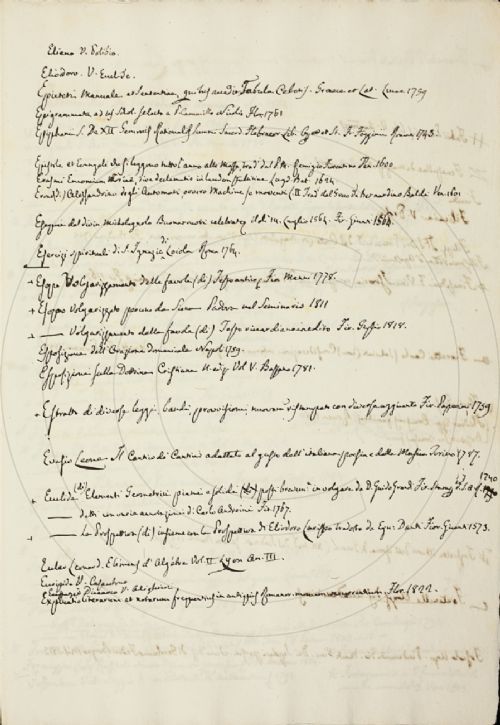 Eliano V. Polibio.
Eliodoro. V. Euclide.
Epicteti Manuale et Sententiae, quibus accedit Tabula Cebetis. Graece et Lat. 1759
Epigrammata ad Flor. 1781
Epiphanii S. De XII. Gemmis Romae 1743.
Epistole et Evangeli che si leggono tutto l'anno alle Messe Trad. dal P. M. Remigio Fiorentino 1600
Erasmi Encomium Moriae, sive declamatio in laudem stultitiae Lugd. Bat.
Erone Alessandrino degli Automati ovvero Machine se moventi (II Trad. dal Greco di Bernardino Baldi Ven. 1601
Esequie del divin Michelagnolo Buonarroti celebrate il dì 14. Luglio 1564. Fir. Giunti 1564.
Esercizi spirituali di S. Ignazio di Loiola Roma 1764.
+ Esopo Volgarizzamento delle favole (di) Testo antico Fir. Manni 1778.
+ Esopo Volgarizzato per uno da Siena Padova nel Seminario 1811
+ —— Volgarizzamento delle favole (di) Testo riccardiano inedito Fir. 1818.
Esposizione dell'Orazione domenicale Napoli 1789.
Esposizione sulla Dottrina Cristiana Vol V. Bassano 1781.
+ Estratto di diverse leggi, bandi, provvisioni, ristampato con diverse aggiunte Fir. 1759
Evasio Leone Il Cantico de' Cantici adattato al gusto dell'italiana poesia e della Musica Torino 1787.
+ Euclide (di) Elementi Geometrici piani e solidi posti brevem. in volgare da D. Guido Grandi Fir. 1740
—— detti con varie annotazioni di Carlo Andreini Fir. 1767.
+ —— La Prospettiva (di) insieme con la Prospettiva di Eliodoro Larisseo Tradotte da Egn. Danti Fior. Giunti 1573.
Euler Leonard. Elemens d'Algébre Vol. II Lyon An. III.
Euripide V.
V. Alighieri
Explicatio litterarum et notarum frequentius in antiquis Romanor. monumentis Flor. 1822.